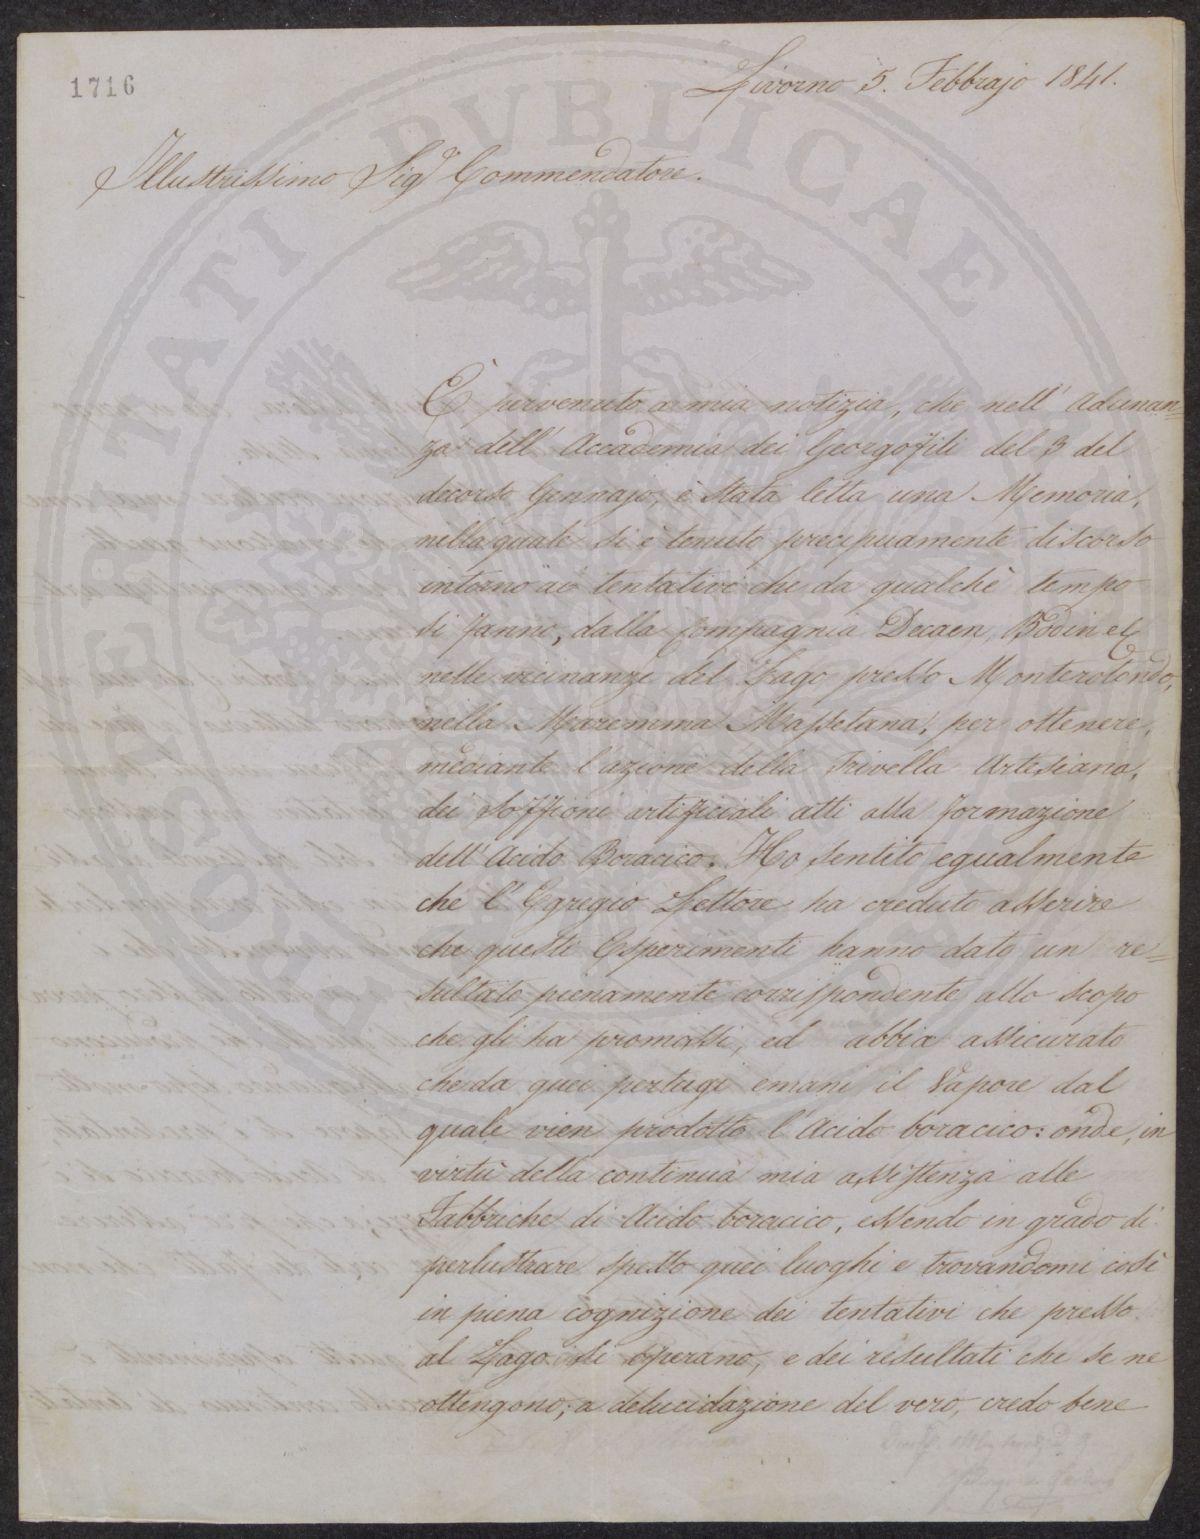 1716
Livorno 5. Febbrajo 1841.
Illustrissimo Sigr Commendatore.
È pervenuto a mia notizia, che nell' Adunan=
za dell' Accademia dei Georgofili del 3 del
decorso Gennajo, è stata letta una Memoria,
nella quale si è tenuto precipuamente discorso
intorno ai tentativi che da qualche tempo
si fanno, dalla Compagnia Decaen, Bodin eC
nelle vicinanze del Lago presso Monterotondo,
nella Maremma Massetana, per ottenere,
mediante l'azione della Trivella Artesiana,
dei Soffioni artificiali atti alla formazione
dell' Acido Boracico. Ho sentito egualmente
che l' Egregio Lettore ha creduto asserire
che questi Esperimenti hanno dato un re=
sultato pienamente corrispondente allo scopo
che gli ha promossi, ed abbia assicurato
che da quei pertugi emani il Vapore dal
quale vien prodotto l'Acido boracico: onde, in
virtù della continua mia assistenza alle
Fabbriche di Acido boracico, essendo in grado di
perlustrare spesso quei luoghi e trovandomi così
in piena cognizione dei tentativi che presso
al Lago si operano, e dei resultati che se ne
ottengono; a delucidazione del vero, credo bene